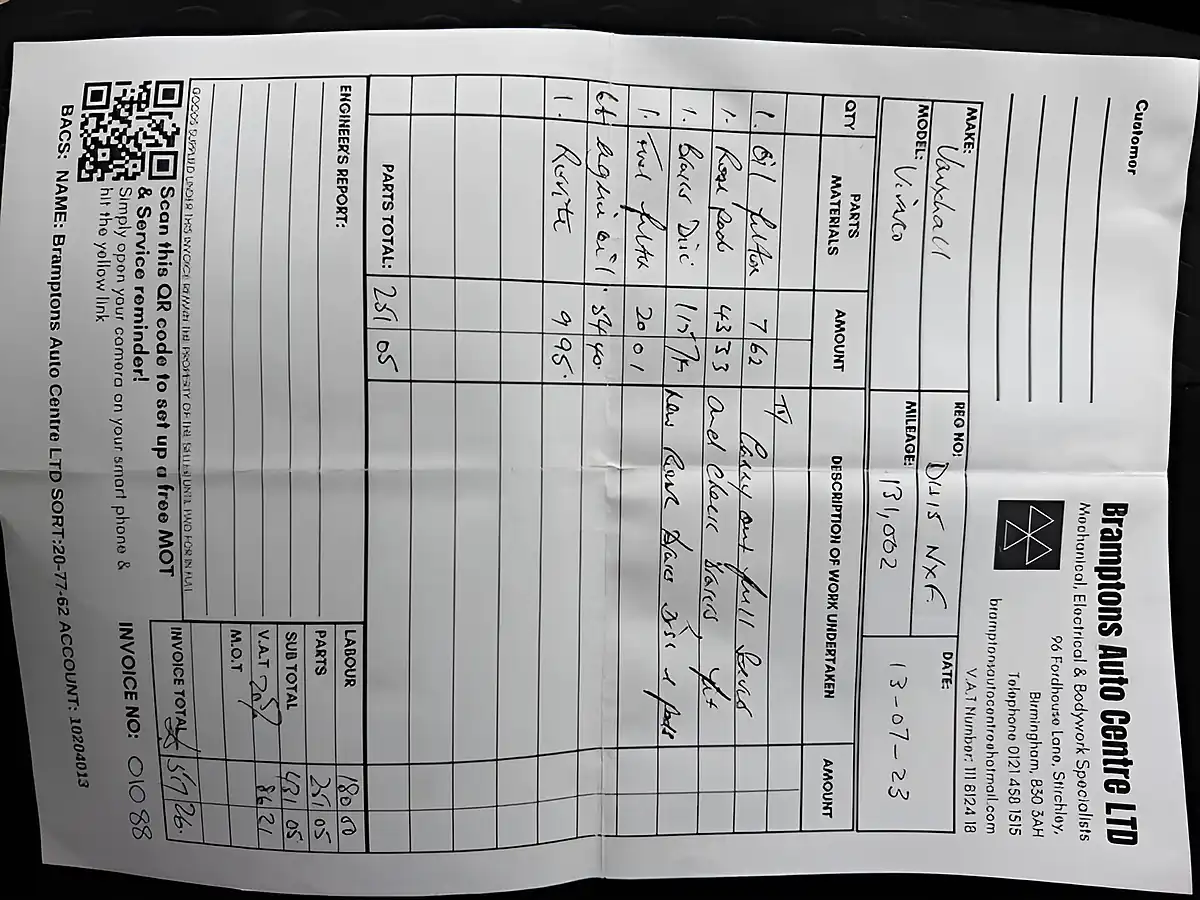 Customer
Bramptons Auto Centre LTD
Mechanical, Electrical & Bodywork Specialists
96 Fordhouse Lane, Stirchley,
Birmingham, B30 3AH
Telephone 0121 458 1515
bramptonsautocentre@hotmail.com
V.A.T Number: 111 8124 18
MAKE: Vauxhall
MODEL: Vivaro
REG NO:
NXF
MILEAGE: 131,002
DATE:
13-07-23
QTY PARTS MATERIALS AMOUNT DESCRIPTION OF WORK UNDERTAKEN AMOUNT
To
1. Oil filter 7 62 Carry out full
1. Pads 43 33 and check Brakes fit
1. Brakes Disc New Brake Disc & pads
1. Fuel filter 20 01
engine oil 54 40
1. 9 95
PARTS TOTAL: 251 05
ENGINEER'S REPORT:
LABOUR 180 00
PARTS 251 05
SUB TOTAL 431 05
V.A.T 20% 86 21
M.O.T
INVOICE TOTAL 517 26
GOODS SUPPLIED UNDER THIS INVOICE REMAIN THE PROPERTY OF THE SELLER UNTIL PAID FOR IN FULL
Scan this QR code to set up a free MOT
& Service reminder!
Simply open your camera on your smart phone &
hit the yellow link
INVOICE NO: 01088
BACS: NAME: Bramptons Auto Centre LTD SORT:20-77-62 ACCOUNT: 10204013